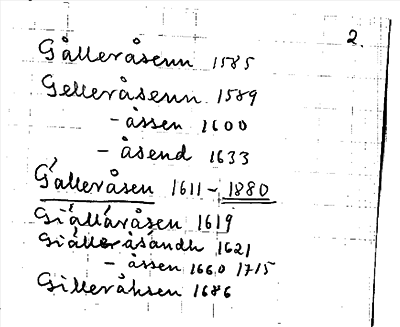 2.
Gålleråsenn 1585
Gelleråsenn 1589
- åssen 1600
- åsend 1633
Gälleråsen 1611 - 1880
Giällåråsen 1619
Giälleråsåndh 1621
- åssen 1660 1715
Gilleråhsen 1686